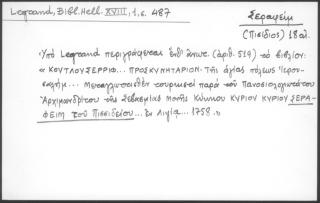 Legrand, Bibl. Hell. XVIII, 1, σ. 487
Σεραφείμ
(Πισίδιος) 18 αι.
Ὑπὸ Legrand περιγράφεται ἐνθ' ἀνωτ. (ἀριθ. 519) τὸ βιβλίον:
« ΚΟΥΤΛΟΥΣΕΡΡΙΦ... ΠΡΟΣΚΥΝΗΤΑΡΙΟΝ. Τῆς ἁγίας πόλεως Ἱερου-
σαλήμ... Μεταγλωττισθὲν τουρκιστὶ παρὰ τοῦ Πανοσιολογιωτάτου
Ἀρχιμανδρίτου τῆς Σεβασμίας Μονῆς Κύκκου ΚΥΡΙΟΥ ΚΥΡΙΟΥ ΣΕΡΑ-
ΦΕΙΜ τοῦ Πισσιδείου... Ἐν Λιψίᾳ... 1758.»